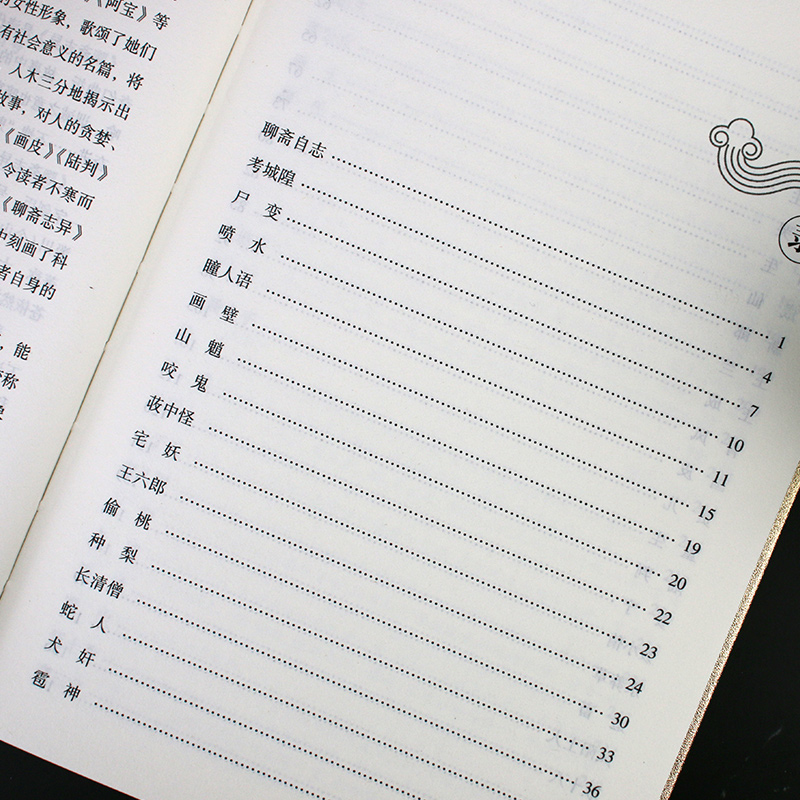 《阿宝》等
女性形象，歌颂了她们
有社会意义的名篇，将
人木三分地揭示出
故事，对人的贪婪、
《画皮》《陆判》
令读者不寒而
《聊斋志异》
中刻画了科
者自身的
，能
称
聊斋自志 1
考城隍 4
尸 变 7
喷 水 10
瞳人语 11
画 壁 15
山 魈 19
咬 鬼 20
荍中怪 22
宅 妖 23
王六郎 24
偷 桃 30
种 梨 33
长清僧 36
蛇 人
犬 奸
雹 神